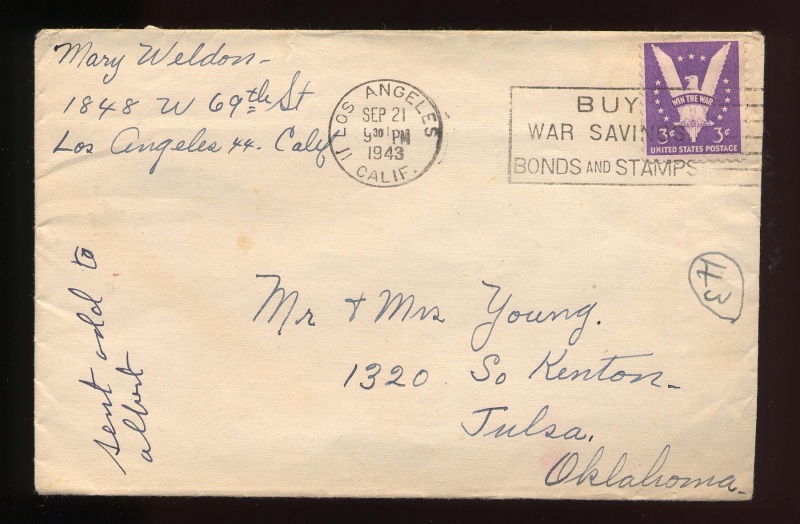 Mary Weldon-
1848 W 69th St
Los Angeles 44. Calif
LOS ANGELES
SEP 21
9 30 PM
1943
11 CALIF.
BUY
WAR SAVINGS
BONDS AND STAMPS
WIN THE WAR
3¢ 3¢
UNITED STATES POSTAGE
43
Mr & Mrs Young.
1320 So Kenton-
Tulsa.
Oklahoma.
sent add to
albert